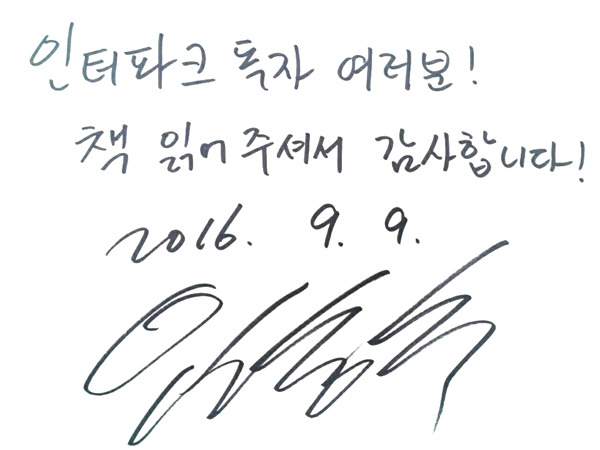 인터파크 독자 여러분!
책 읽어 주셔서 감사합니다!
2016. 9. 9.